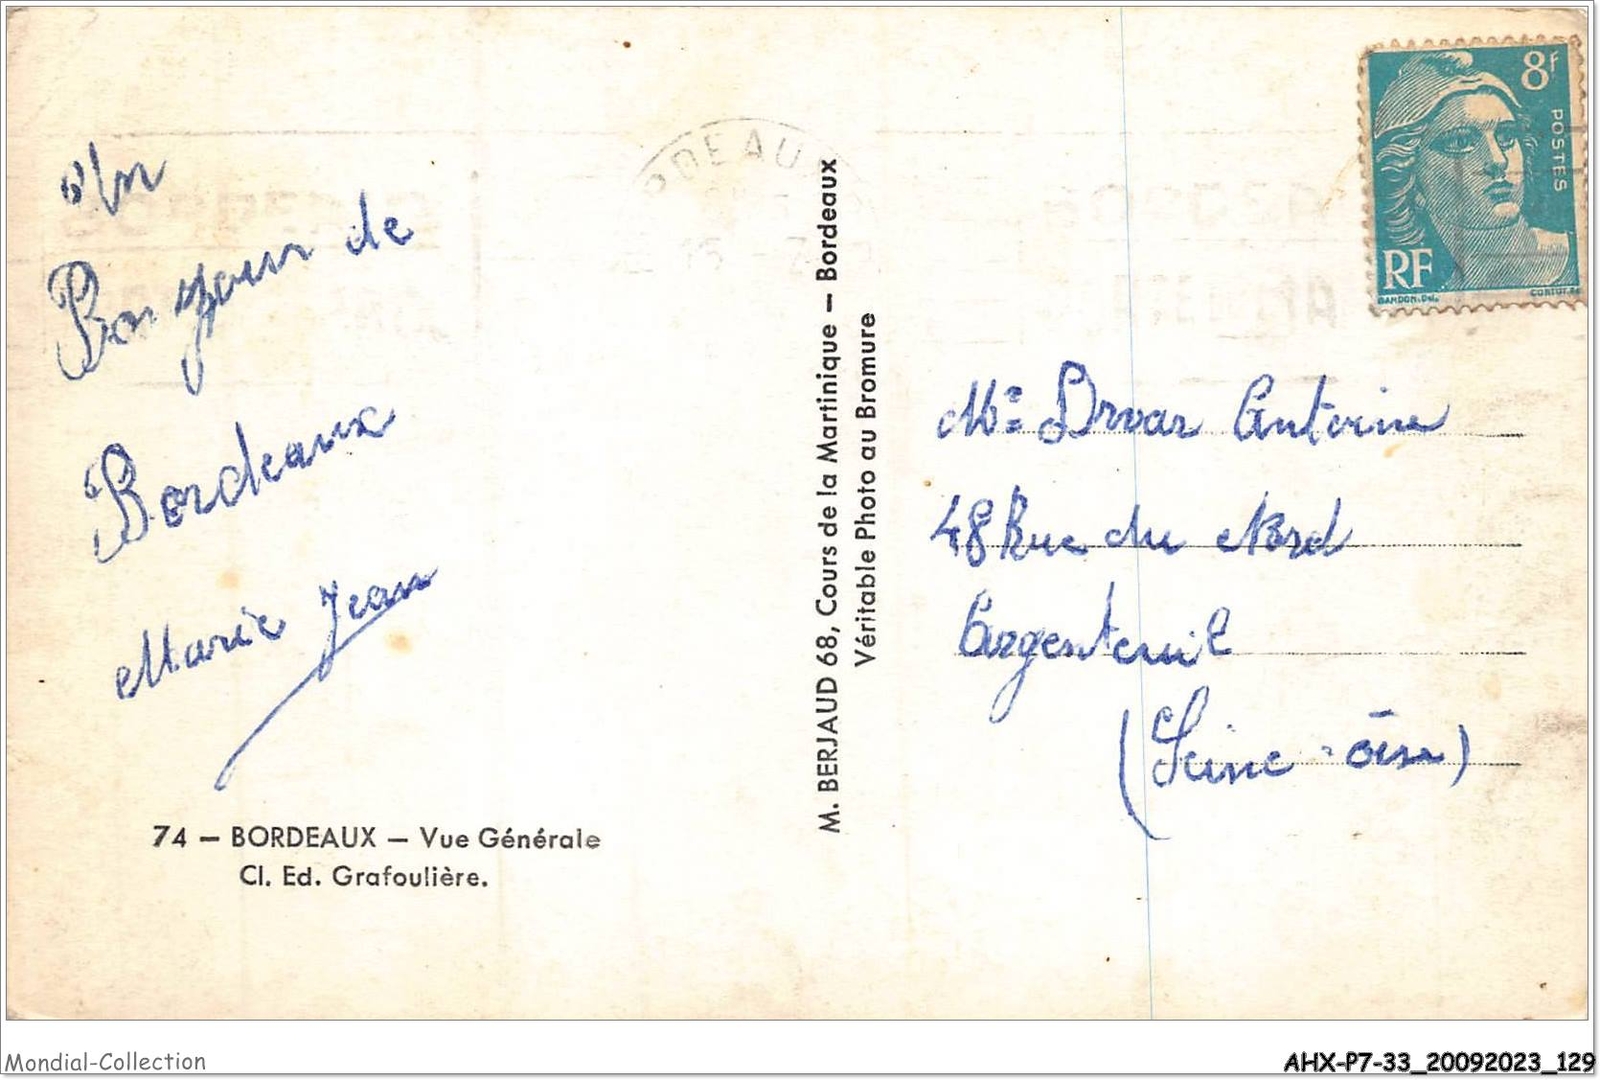 Un
Bonjour de
Bordeaux
Marie Jean
74 — BORDEAUX — Vue Générale
Cl. Ed. Grafoulière.
M. BERJAUD 68, Cours de la Martinique — Bordeaux
Véritable Photo au Bromure
8F
POSTES
RF
GANDON. Del.
CORTOT
Mr Drvar Antoine
48 Rue du Nord
Argenteuil
(Seine - Oise)
Mondial-Collection
AHX-P7-33_20092023_129